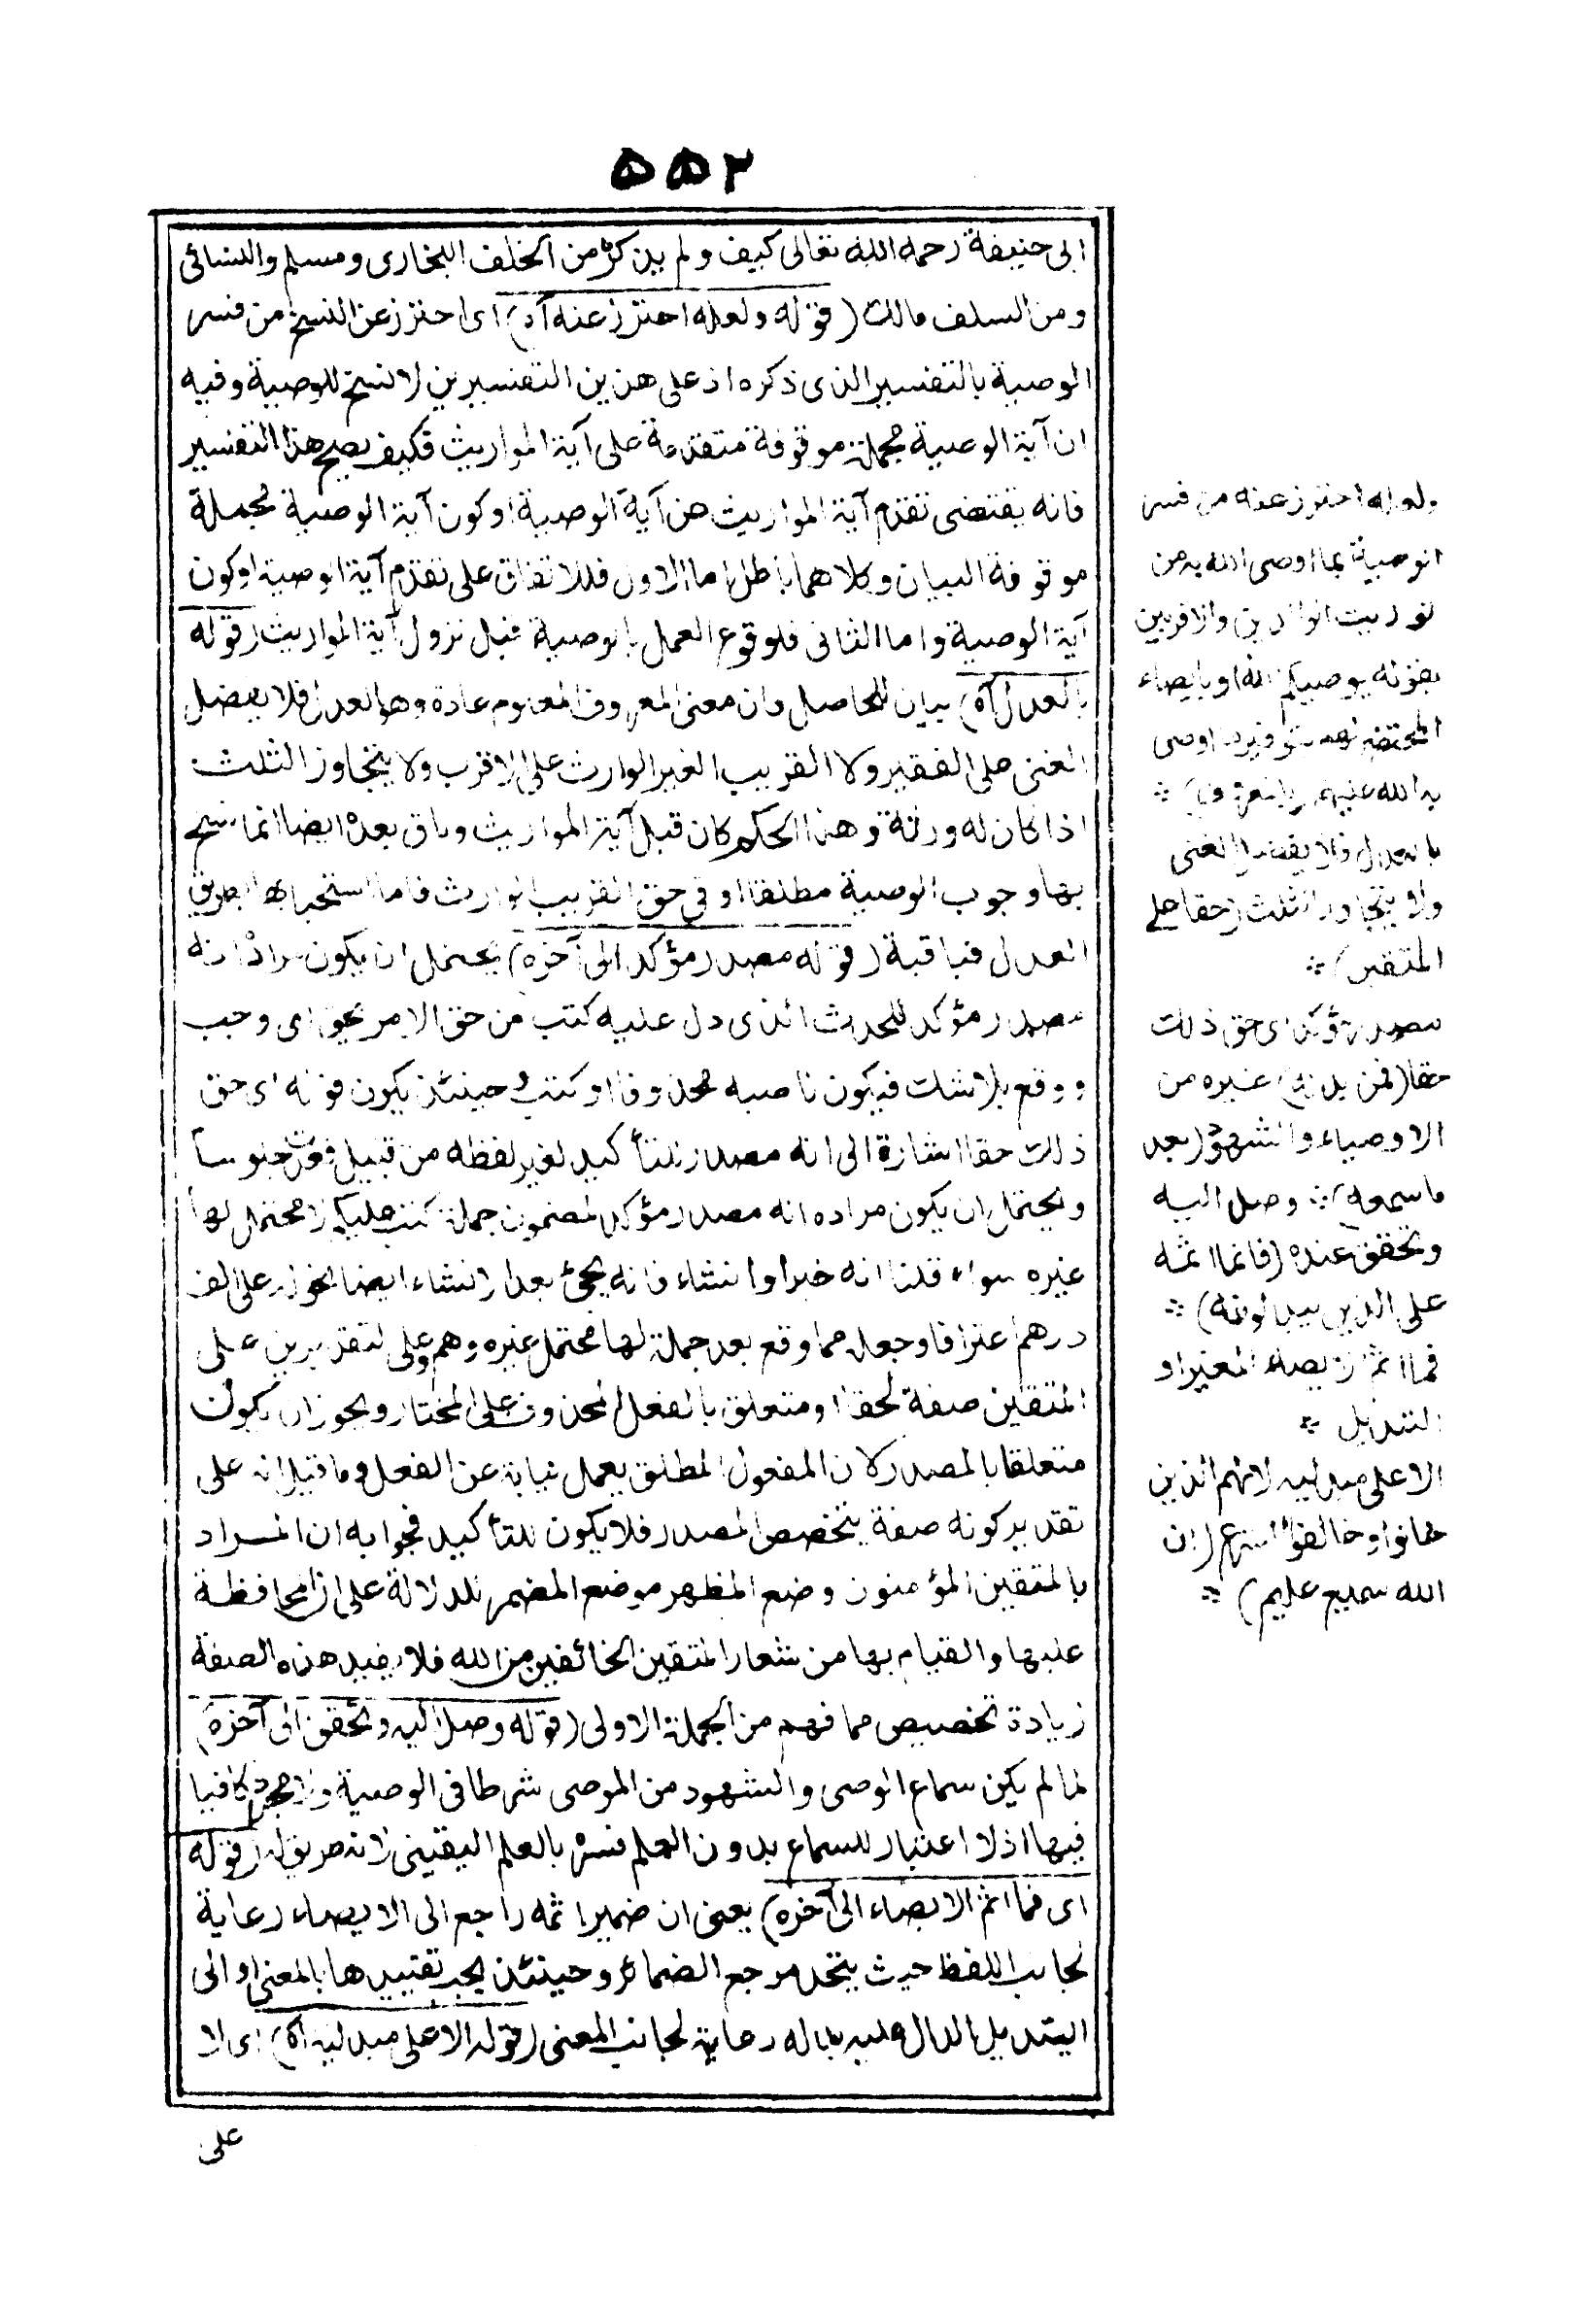 ۵۵۲
ابى حنيفة رحمه الله تعالى كيف ولم يذكره من الخلف البخارى ومسلم والنسائى
ومن السلف مالك (قوله ولعله احترز عنه آه) اى احترز عن النسخ من فسر
الوصية بالتفسير الذى ذكره اذ على هذين التفسيرين لا نسخ للوصية وفيه
ان آية الوصية مجملة موقوفة متقدمة على آية المواريث فكيف يصح هذا التفسير
فانه يقتضى تقدم آية المواريث عن آية الوصية او كون آية الوصية مجملة
موقوفة البيان وكلاهما باطل اما الاول فللاتفاق على تقدم آية الوصية او كون
آية الوصية واما الثانى فلوقوع العمل بالوصية قبل نزول آية المواريث (قوله
بالعدل آه) بيان للحاصل وان معنى المعروف المعلوم عادة وهو العدل فلا يفضل
الغنى على الفقير ولا القريب الغير الوارث على الاقرب ولا يتجاوز الثلث
اذا كان له ورثة وهذا الحكم كان قبل آية المواريث وباق بعده ايضا انما نسخ
بها وجوب الوصية مطلقا او فى حق القريب الوارث فاما استحبابها بطريق
العدل فباقية (قوله مصدر مؤكد الى آخره) يحتمل ان يكون مراده انه
مصدر مؤكد للحدث الذى دل عليه كتب من حق الامر يحق اى وجب
ووقع بلا شك فيكون ناصبه محذوفا او كتب وحينئذ يكون قوله اى حق
ذلك حقا اشارة الى انه مصدر للتأكيد لغير لفظه من قبيل قعدت جلوسا
ويحتمل ان يكون مراده انه مصدر مؤكد لمضمون جملة كتب عليكم لا محتمل لها
غيره سواء قلنا انه خبر او انشاء فانه يجئ بعد الانشاء ايضا نحو له على الف
درهم اعترافا وجعله مما وقع بعد جملة لها محتمل غيره وهم وعلى التقديرين على
المتقين صفة لحقا او متعلق بالفعل المحذوف على المختار ويجوز ان يكون
متعلقا بالمصدر لان المفعول المطلق يعمل نيابة عن الفعل وما قيل انه على
تقدير كونه صفة يتخصص المصدر فلا يكون للتأكيد فجوابه ان المراد
بالمتقين المؤمنون وضع المظهر موضع المضمر للدلالة على ان المحافظة
عليها والقيام بها من شعار المتقين الخائفين من الله فلا يفيد هذه الصفة
زيادة تخصيص مما فهم من الجملة الاولى (قوله وصل اليه وتحقق الى آخره)
لما لم يكن سماع الوصى والشهود من الموصى شرطا فى الوصية ولا مجرده كافيا
فيها اذ لا اعتبار للسماع بدون العلم فسره بالعلم اليقينى لانه طريق له (قوله
اى فما اثم الايصاء الى آخره) يعنى ان ضمير اثمه راجع الى الايصاء رعاية
لجانب اللفظ حيث يتحد مرجع الضمائر وحينئذ يجب تقييدها بالمعنى او الى
التبديل الدال عليه بداله رعاية لجانب المعنى (قوله الا على مبدليه آه) اى الا
على
ولعله احترز عنه من فسر
الوصية بما اوصى الله به من
توريث الوالدين والاقربين
بقوله يوصيكم الله او بايصاء
المحتضر لهم بتوفير ما اوصى
به الله عليهم (بالمعروف) ∴
بالعدل فلا يفضل الغنى
ولا يتجاوز الثلث (حقا على
المتقين) ∴
مصدر مؤكد اى حق ذلك
حقا (فمن بدله) غيره من
الاوصياء والشهود (بعد
ما سمعه) ∴ وصل اليه
وتحقق عنده (فانما اثمه
على الذين يبدلونه) ∴
فما اثم الايصاء المغير او
التبديل ∴
الا على مبدليه لانهم الذين
خانوا وخالفوا الشرع (ان
الله سميع عليم) ∴